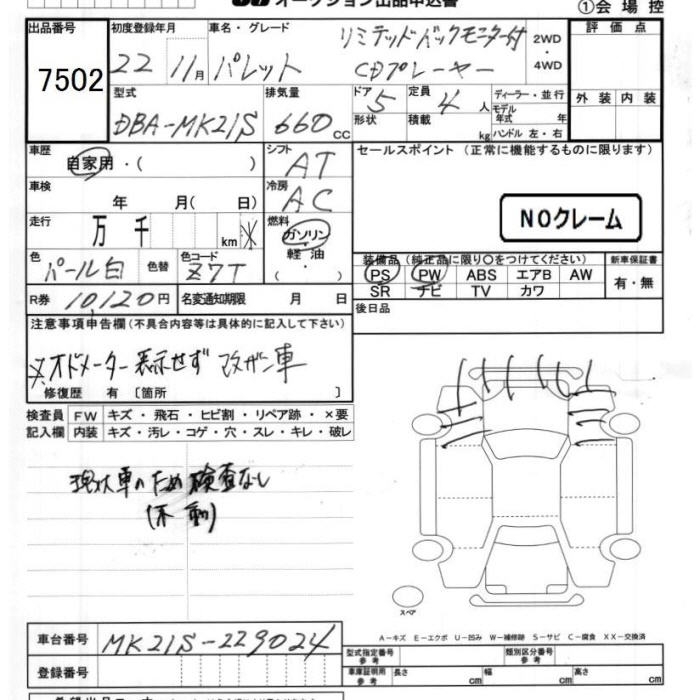 オークション出品申込書
①会場控
出品番号
7502
初度登録年月
22 11月
車名・グレード
パレット リミテッドバックモニター付
CDプレーヤー
2WD
・
4WD
評価点
外装 内装
型式
DBA-MK21S
排気量
660 cc
ドア
5
形状
定員
4 人
積載
kg
ディーラー・並行
モデル
年式 年
ハンドル 左・右
車歴
自家用・( )
シフト
AT
セールスポイント (正常に機能するものに限ります)
NOクレーム
車検
年 月( 日)
冷房
AC
走行
万 千 km ※
燃料
ガソリン
・
軽油
( )
色
パール白
色替
色コード
Z7T
装備品 (純正品に限り〇をつけてください)
PS PW ABS エアB AW
SR ナビ TV カワ
新車保証書
有・無
R券 10,120円
名変通知期限 月 日
後日品
注意事項申告欄(不具合内容等は具体的に記入して下さい)
※オドメーター表示せず 改ザン車
修復歴 有 〔箇所 〕
検査員
記入欄
FW キズ・飛石・ヒビ割・リペア跡・×要
内装 キズ・汚レ・コゲ・穴・スレ・キレ・破レ
現状車のため検査なし
(不動)
スペア
A-キズ E-エクボ U-凹み W-補修跡 S-サビ C-腐食 XX-交換済
車台番号 MK21S-229024
登録番号
型式指定番号
参考
類別区分番号
参考
車庫証明用
参考
長さ cm 幅 cm 高さ cm